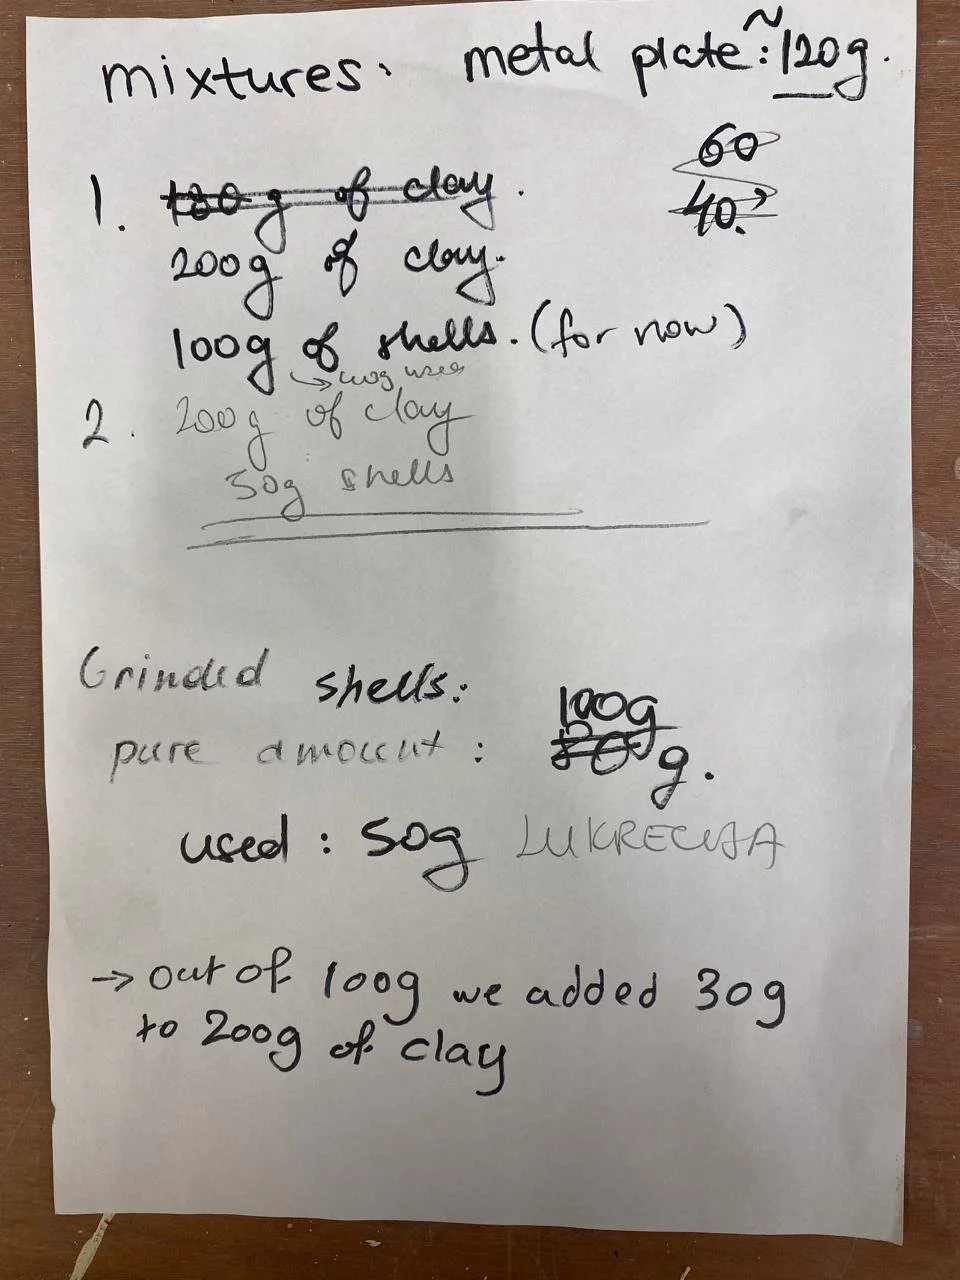 mixtures: metal plate: ~120g.
60
40.
1. 180 g of clay.
200g of clay.
100g of shells. (for now)
used
2. 200g of clay
30g shells
Grinded shells: 100g
pure amount : g.
used : 50g
→ out of 100g we added 30g
to 200g of clay